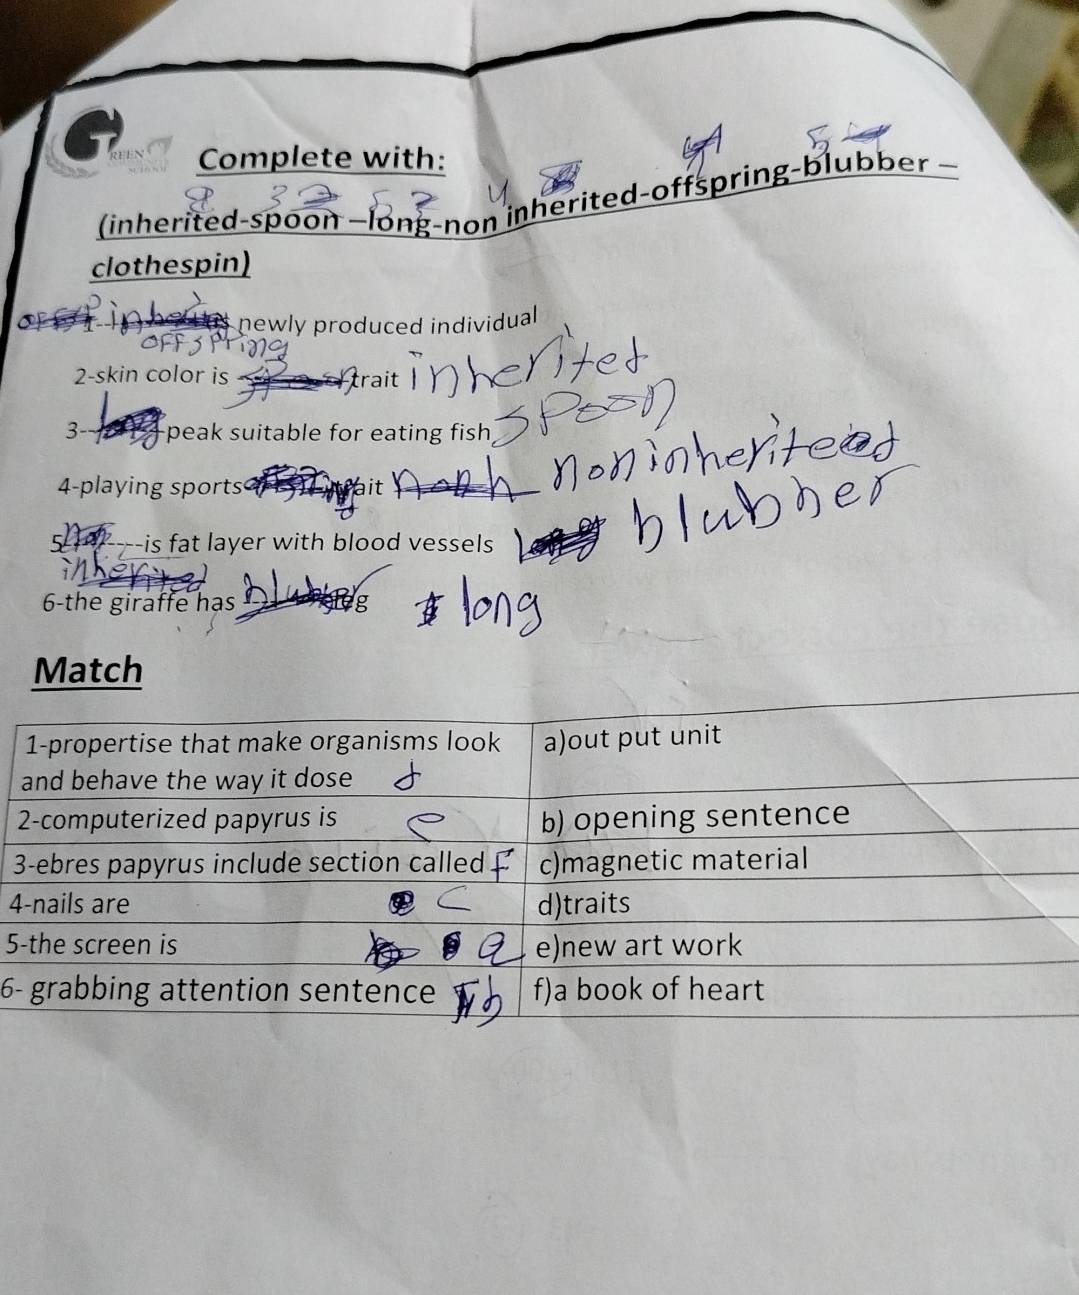 REEN
Complete with:
8 3 5 2 4 5
(inherited-spoon –long-non inherited-offspring-blubber –
clothespin)
newly produced individual
OFFSPring
2-skin color is trait inherited
3- peak suitable for eating fish spoon
4-playing sports noninherited
5 is fat layer with blood vessels blubber
6-the giraffe has long
Match
1-propertise that make organisms look a)out put unit
and behave the way it dose d
2-computerized papyrus is e b) opening sentence
3-ebres papyrus include section called F c)magnetic material
4-nails are c d)traits
5-the screen is a e)new art work
6- grabbing attention sentence b f)a book of heart